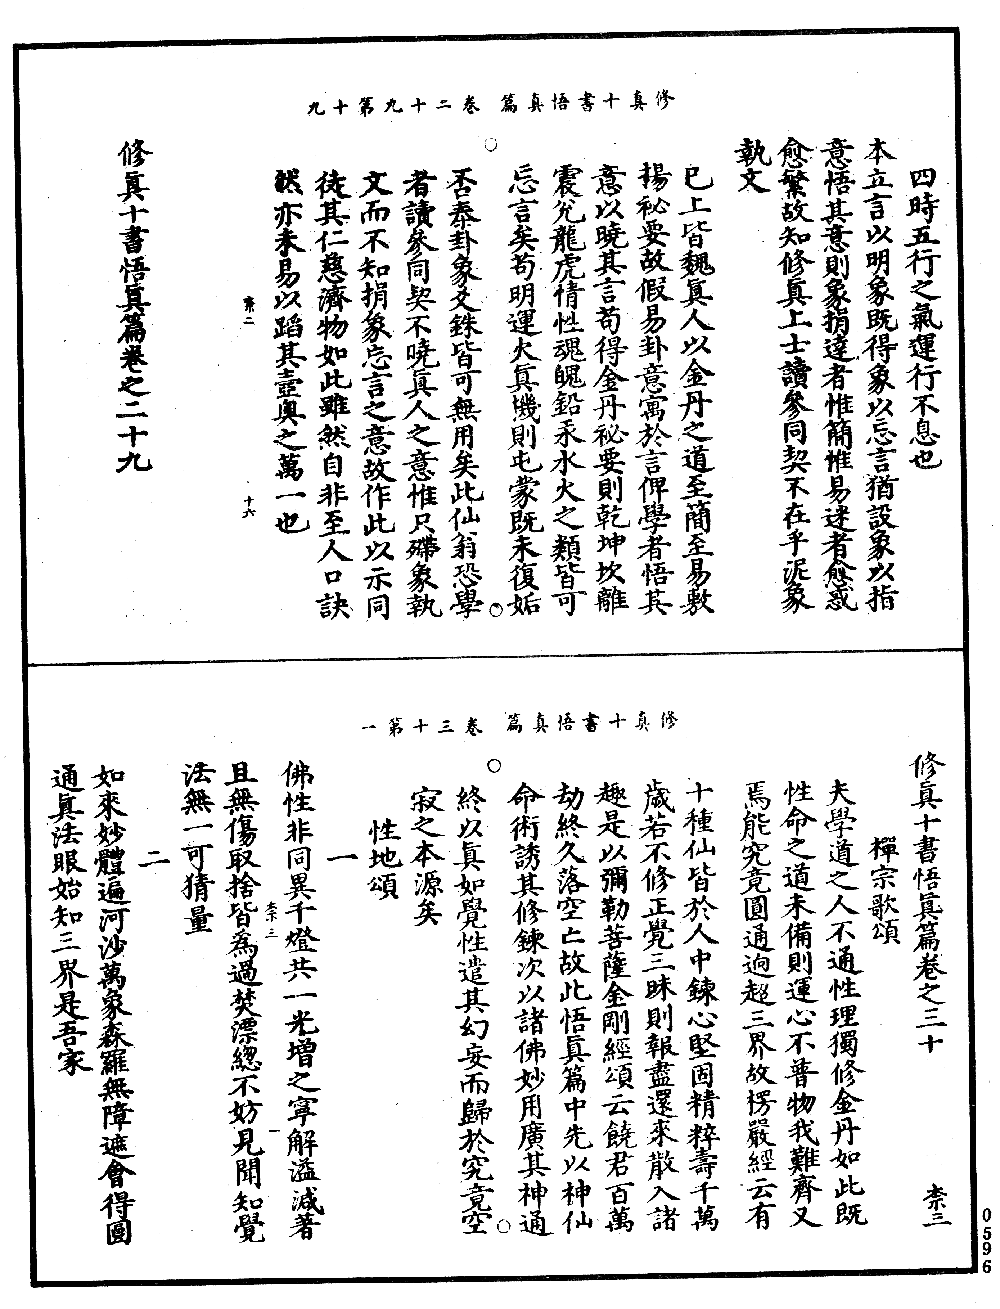 修真十書悟真篇　卷二十九第十九
四時五行之氣運行不息也
本立言以明象既得象以忘言猶設象以指
意悟其意則象捐達者惟簡惟易迷者愈惑
愈繁故知修真上士讀參同契不在乎泥象
執文
已上皆魏真人以金丹之道至簡至易敷
揚祕要故假易卦意寓於言俾學者悟其
意以曉其言苟得金丹祕要則乾坤坎離
震兌龍虎情性魂魄鉛汞水火之類皆可
忘言矣苟明運火真機則屯蒙既未復姤
否泰卦象爻銖皆可無用矣此仙翁恐學
者讀參同契不曉真人之意惟只殢象執
文而不知捐象忘言之意故作此以示同
徒其仁慈濟物如此雖然自非至人口訣
然亦未易以蹈其壼奧之萬一也
柰二　十六
修真十書悟真篇卷之二十九
修真十書悟真篇　卷三十第一
修真十書悟真篇卷之三十　柰三
禪宗歌頌
夫學道之人不通性理獨修金丹如此既
性命之道未備則運心不普物我難齊又
焉能究竟圓通逈超三界故楞嚴經云有
十種仙皆於人中鍊心堅固精粹壽千萬
歲若不修正覺三昧則報盡還來散入諸
趣是以彌勒菩薩金剛經頌云饒君百萬
劫終久落空亡故此悟真篇中先以神仙
命術誘其修鍊次以諸佛妙用廣其神通
終以真如覺性遣其幻妄而歸於究竟空
寂之本源矣
性地頌
一
佛性非同異千燈共一光增之寧解溢減著
柰三　一
且無傷取捨皆為過焚漂總不妨見聞知覺
法無一可猜量
二
如來妙體遍河沙萬象森羅無障遮會得圓
通真法眼始知三界是吾家
0596